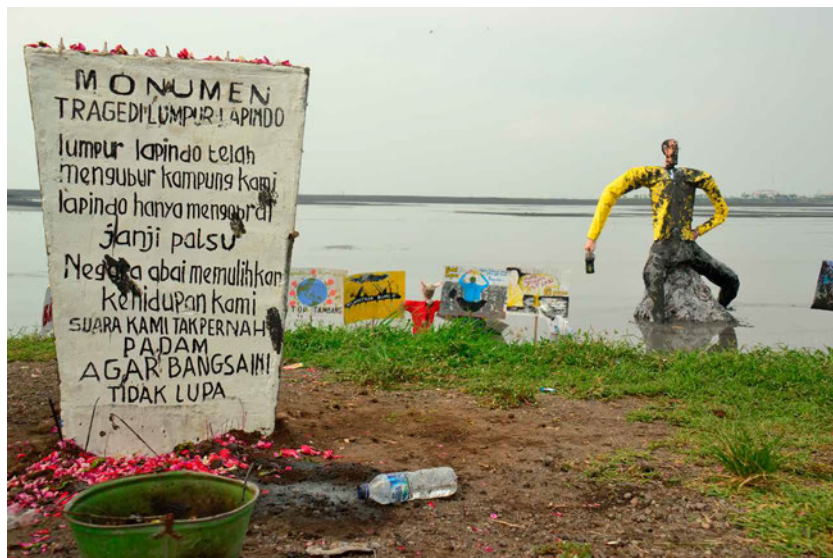 MONUMEN
TRAGEDI LUMPUR LAPINDO
lumpur lapindo telah
mengubur kampung kami
lapindo hanya mengobral
janji palsu
Negara abai memulihkan
kehidupan kami
SUARA KAMI TAK PERNAH
PADAM
AGAR BANGSA INI
TIDAK LUPA
TOP TAMBANG